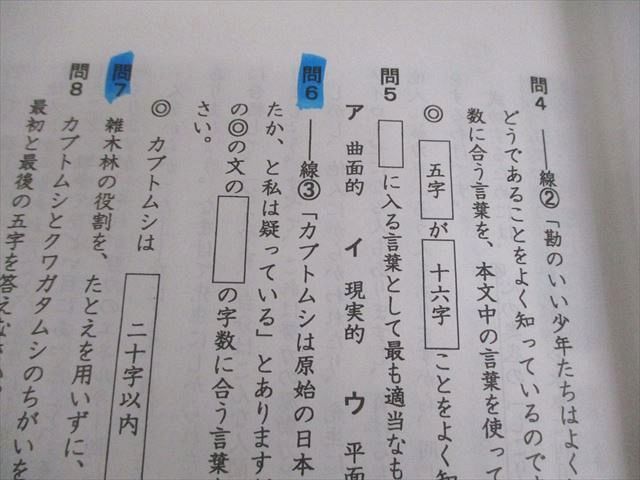 問4 ――線②「勘のいい少年たちはよく
どうであることをよく知っているのです
数に合う言葉を、本文中の言葉を使って
◎ 五字 が 十六字 ことをよく知
問5 に入る言葉として最も適当なも
ア 曲面的 イ 現実的 ウ 平面
問6 ――線③「カブトムシは原始の日本
たか、と私は疑っている」とありますが
の◎の文の の字数に合う言葉
さい。
◎ カブトムシは 二十字以内
問7 雑木林の役割を、たとえを用いずに、
問8 カブトムシとクワガタムシのちがいを
最初と最後の五字を答えなさい